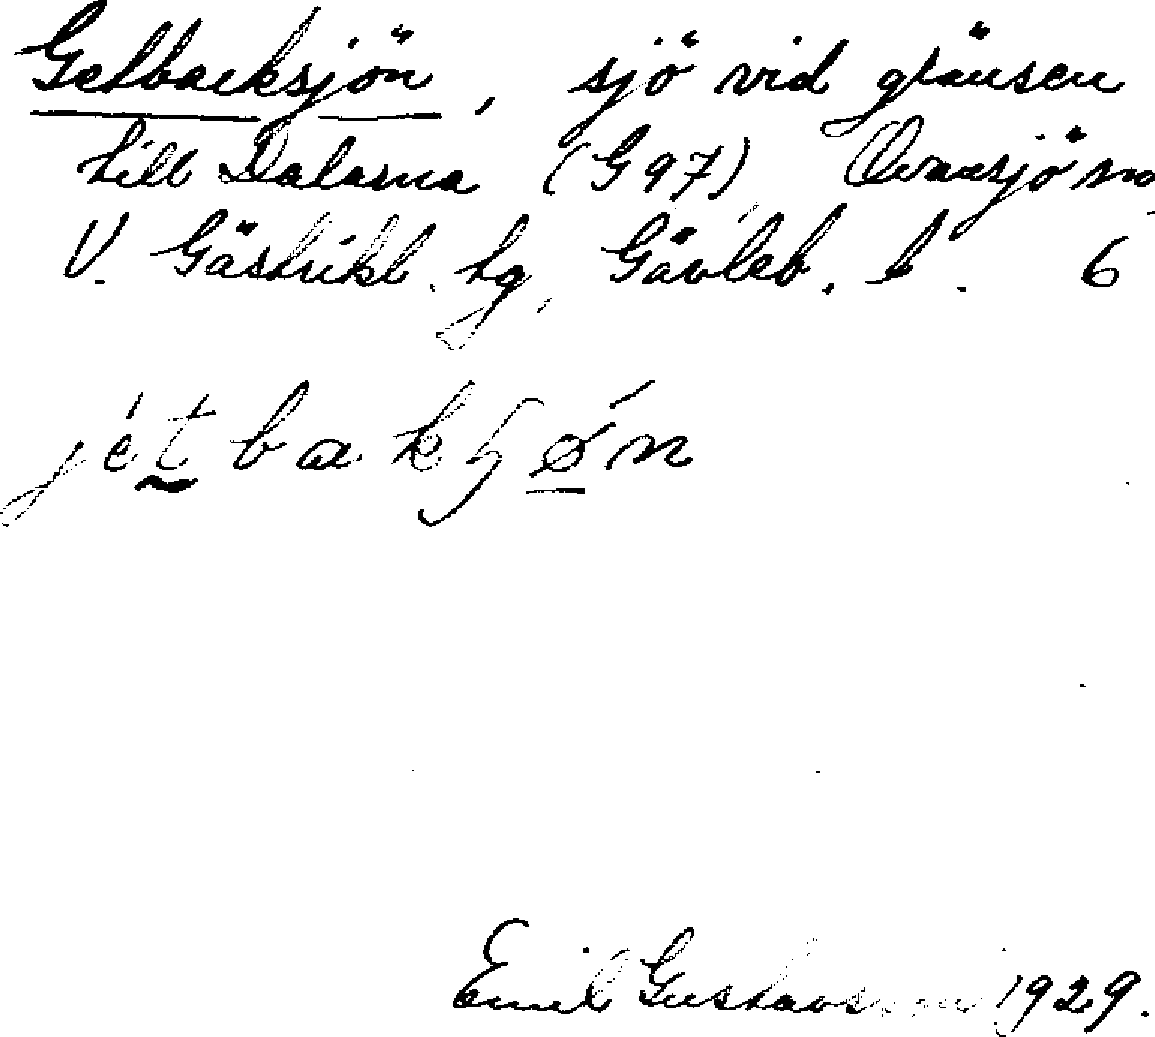 Getbacksjön, sjö vid gränsen
till Dalarna (G 97), Ovansjö sn,
V. Gästrikl. tg, Gävleb. l. 6
jétbakʂøn
Emil Gustavsson 1929.